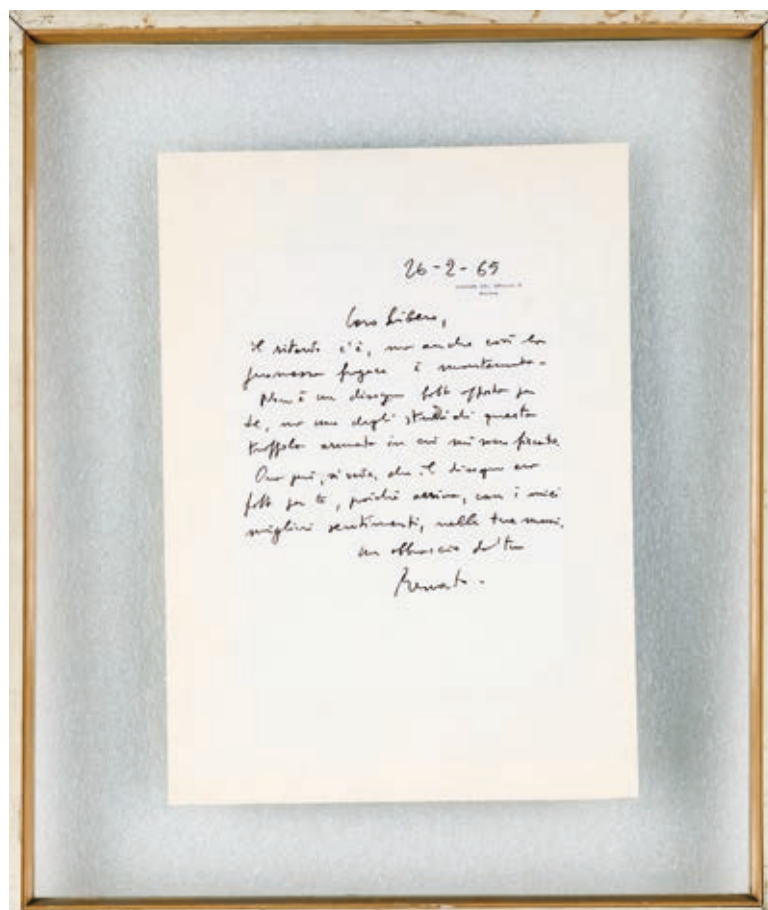 26-2-69
Roma
Caro Libero,
il ritardo c'è, ma anche così la
promessa fugace è mantenuta.
Non è un disegno fatto apposta per
te, ma uno degli studi di questa
truppa armata in cui mi son ficcato.
Ora può, si vede, che il disegno era
fatto per te, poiché arriva, con i miei
migliori sentimenti, nelle tue mani.
un abbraccio dal tuo
Renato.